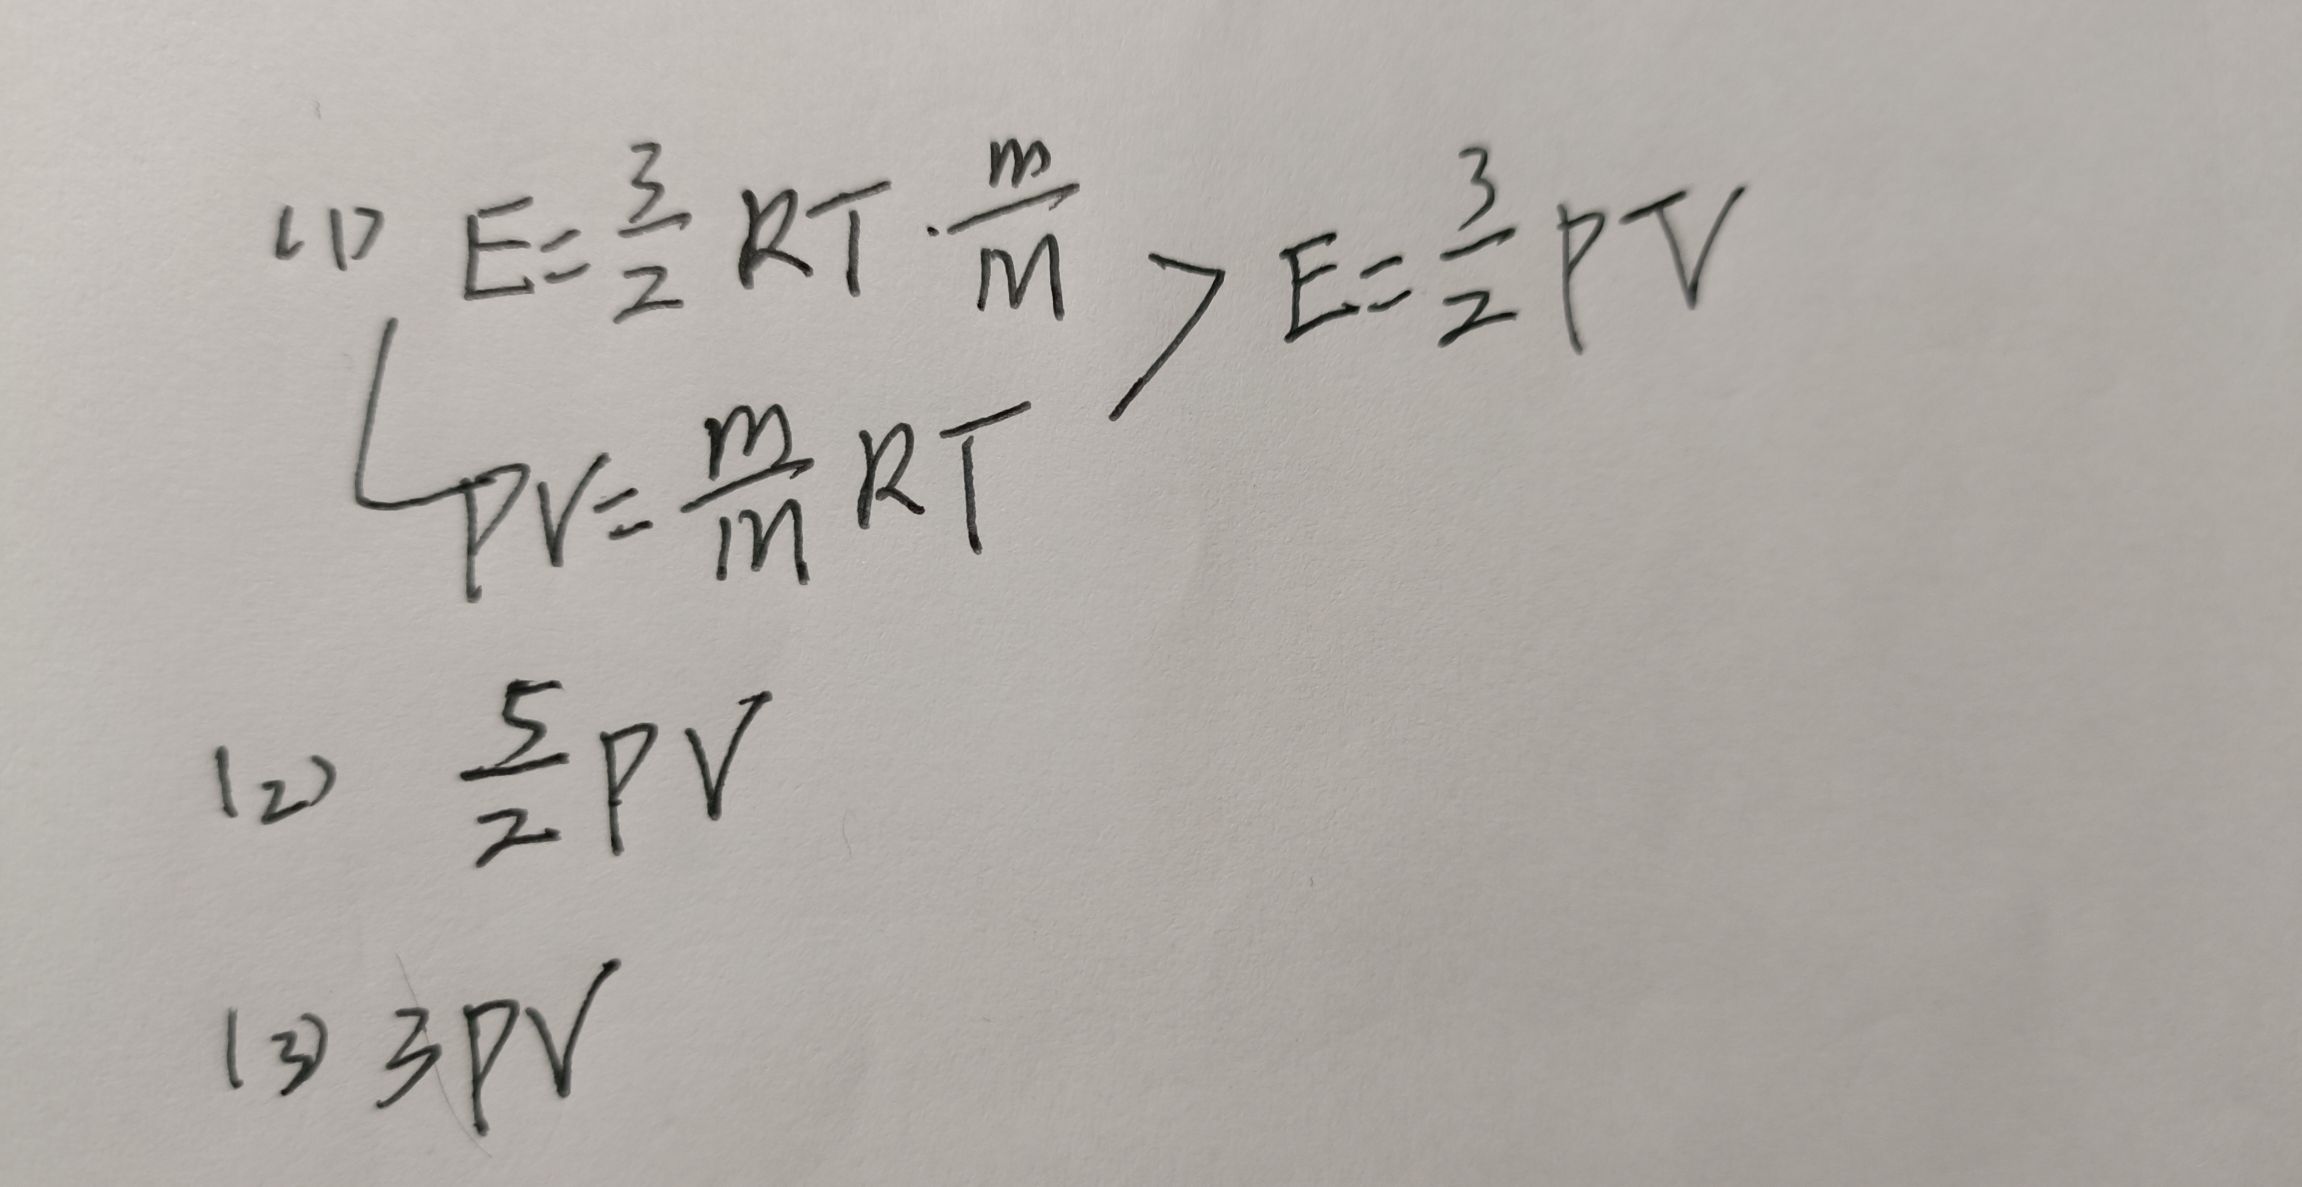 (1) E = 3/2 RT · m/M > E = 3/2 PV
PV = m/M RT
(2) 5/2 PV
(3) 3PV